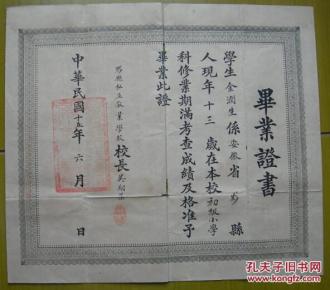 畢業證書
學生金潤生係安徽省 縣
人現年十三歲在本校初級小學
科修業期滿考查成績及格准予
畢業此證
私立 業學校校長吳
中華民國十五年六月 日
孔夫子旧书网